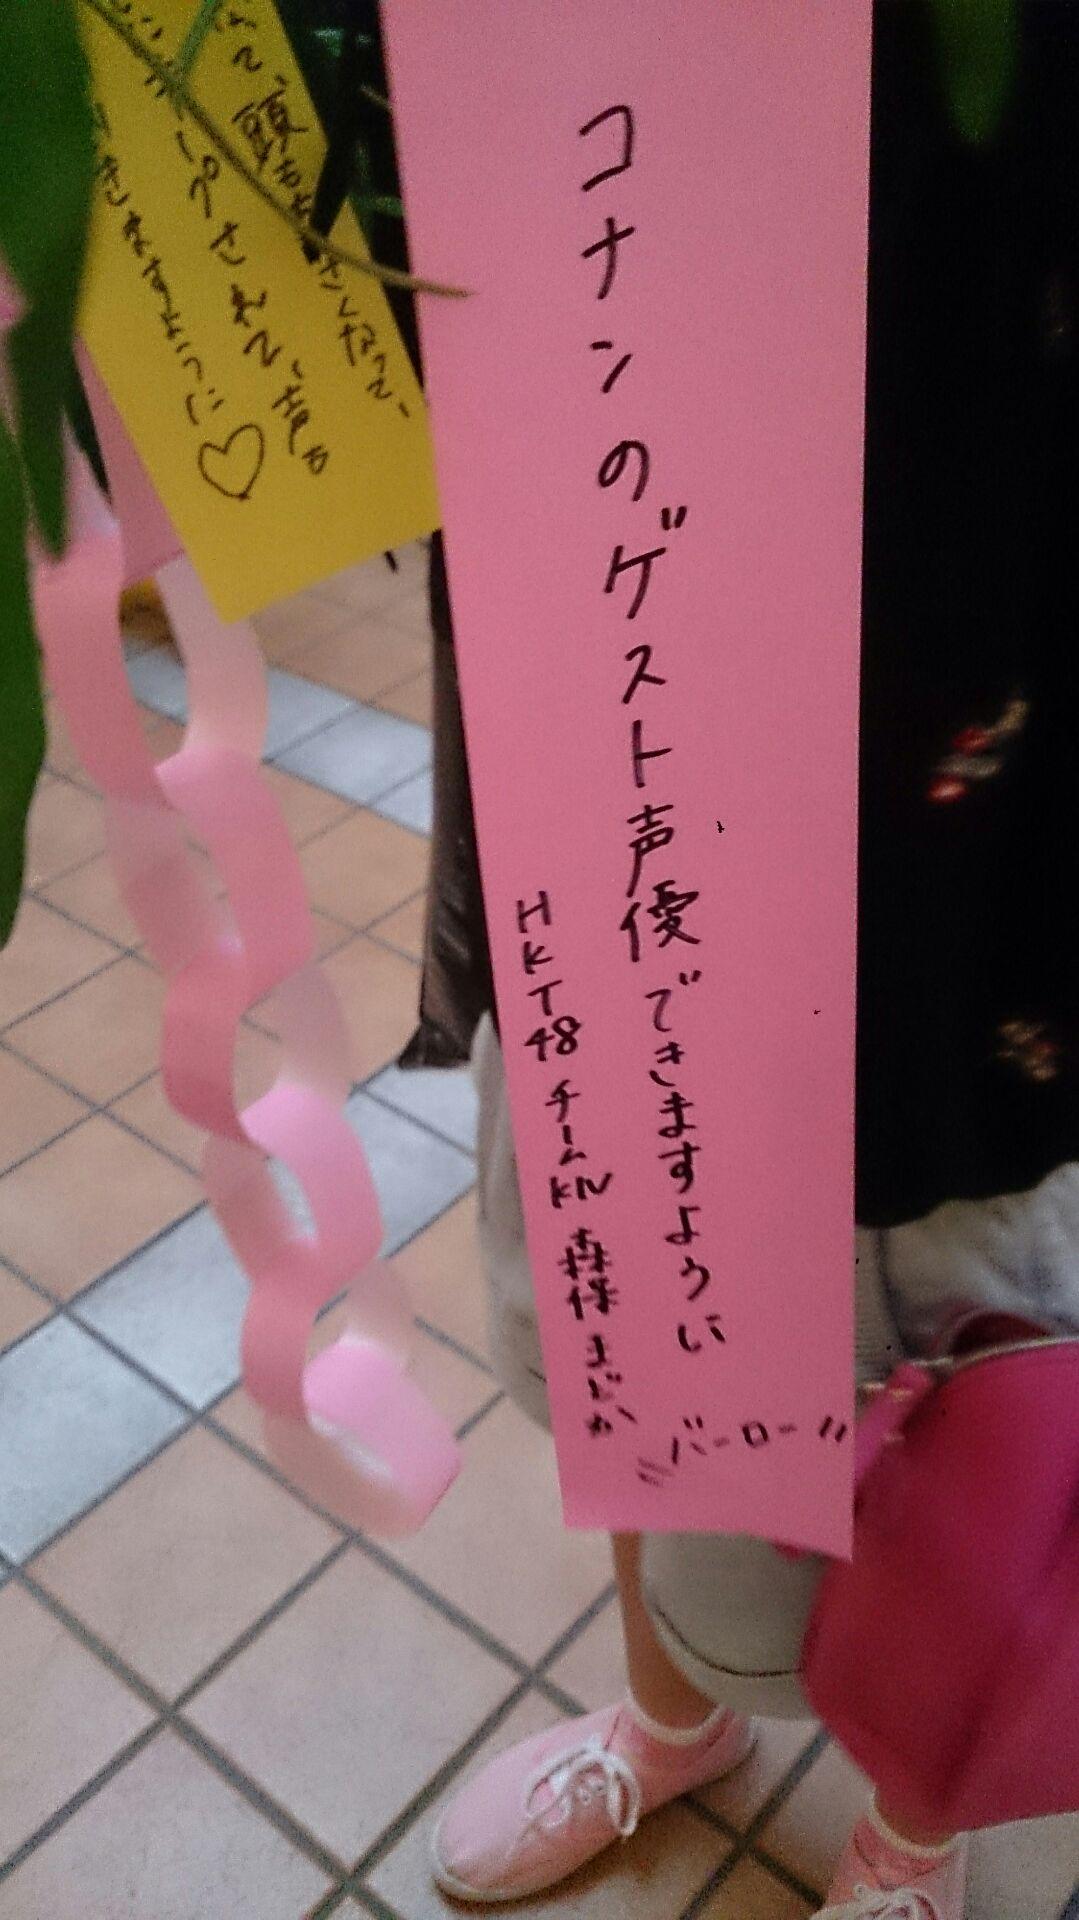 コナンのゲスト声優できますように
バーロー
HKT48 チームKIV 森保まどか
て、頭
さくなって、
されて、声も
きますように♡